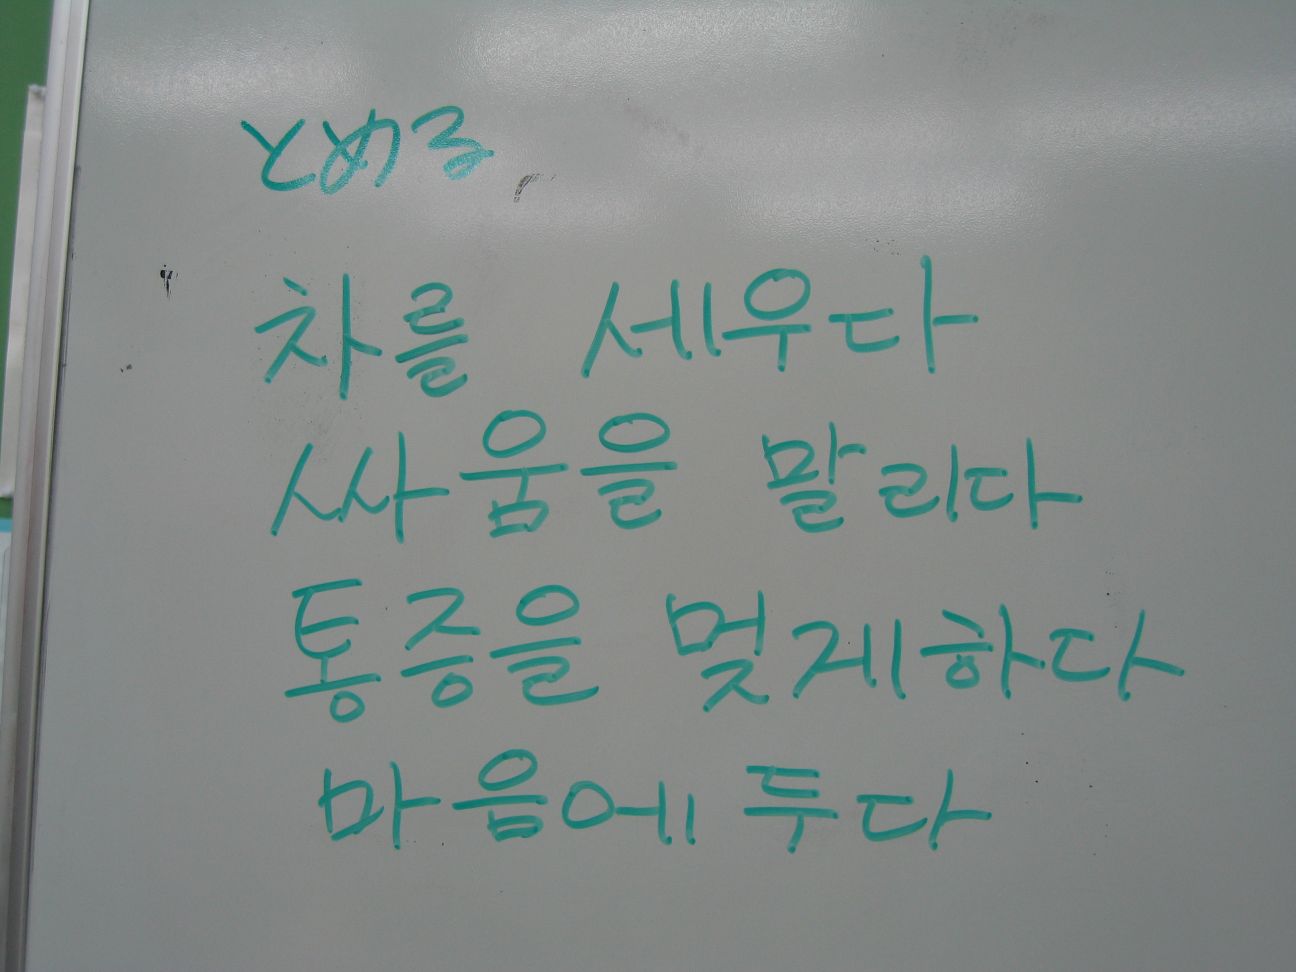 とめる
차를 세우다
싸움을 말리다
통증을 멎게하다
마음에 두다